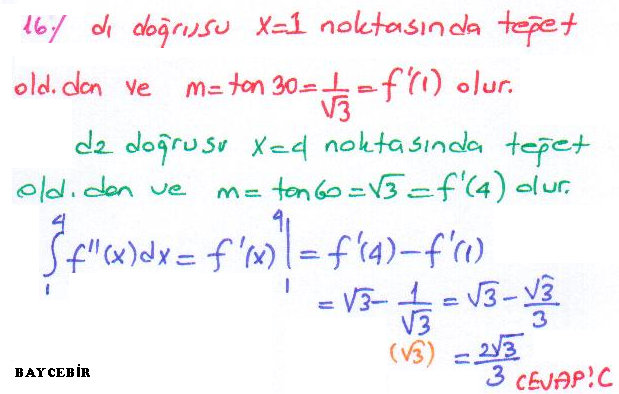 16-/ d₁ doğrusu x=1 noktasında teğet
old.dan ve m= tan 30= 1/√3 = f'(1) olur.
d₂ doğrusu x=4 noktasında teğet
old.dan ve m= tan60=√3=f'(4) olur.
∫₁⁴ f''(x)dx = f'(x)|₁⁴ = f'(4)-f'(1)
= √3- 1/√3 = √3- √3/3
(√3) = 2√3/3
BAYCEBİR CEVAP:C